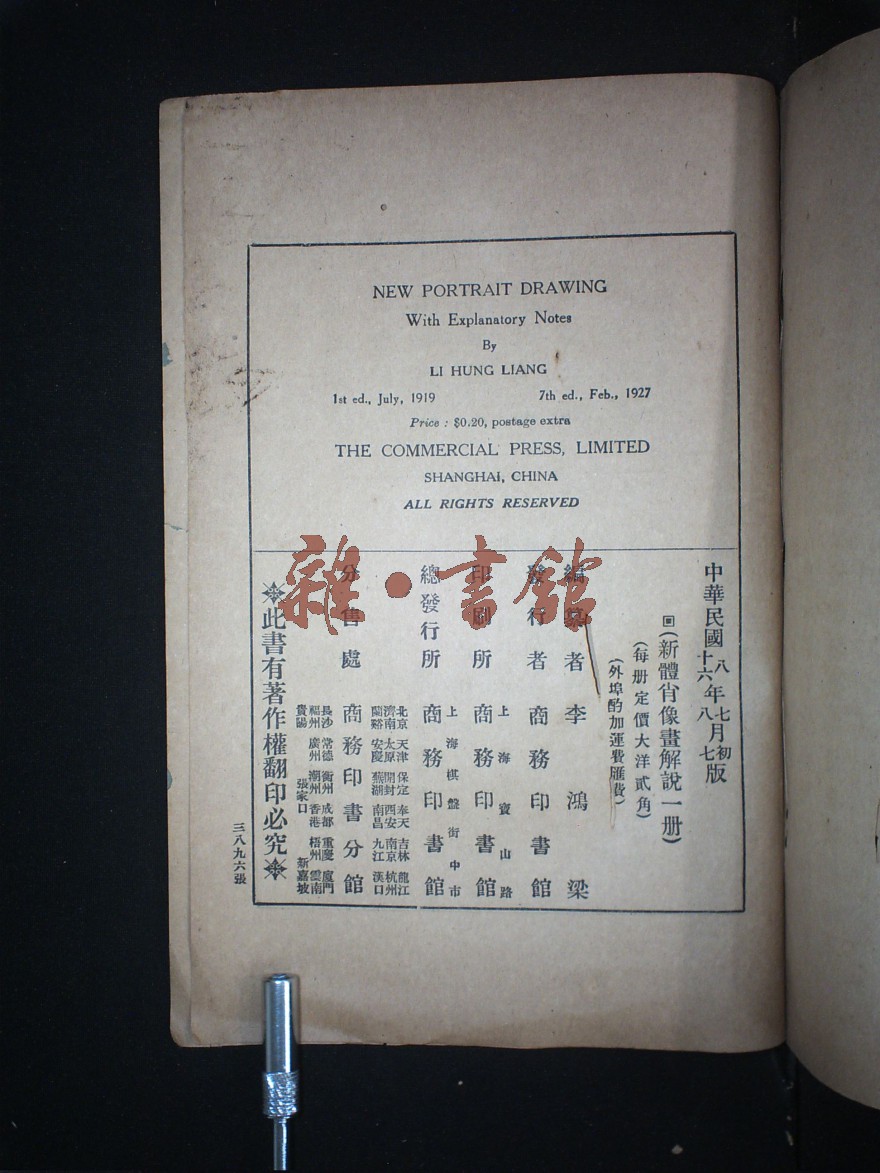 NEW PORTRAIT DRAWING
With Explanatory Notes
By
LI HUNG LIANG
1st ed., July, 1919 7th ed., Feb., 1927
Price : $0.20, postage extra
THE COMMERCIAL PRESS, LIMITED
SHANGHAI, CHINA
ALL RIGHTS RESERVED
中華民國八年七月初版
十六 八 七
(新體肖像畫解說一册)
(每册定價大洋貳角)
(外埠酌加運費匯費)
編纂者 李鴻梁
發行者 商務印書館
上海寶山路
印刷所 商務印書館
上海棋盤街中市
總發行所 商務印書館
北京 天津 保定 奉天 吉林 龍江
濟南 太原 開封 西安 南京 杭州
蘭谿 安慶 蕪湖 南昌 九江 漢口
分售處 商務印書分館
長沙 常德 衡州 成都 重慶 廈門
福州 廣州 潮州 香港 梧州 雲南
貴陽 張家口 新嘉坡
此書有著作權翻印必究
三八九六張
雜·書館